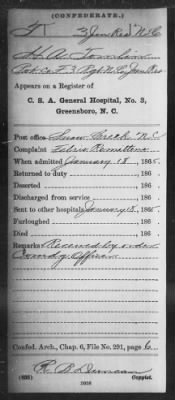 (CONFEDERATE.)
T 3 Jun Res N.C.
H. A. Tomlinson
Pvt. Co. F 3 Regt N.C. Jun Res
Appears on a Register of
C. S. A. General Hospital, No. 3,
Greensboro, N. C.
Post office Snow Creek N.C.
Complaint Febris Remittens
When admitted January 18, 1865.
Returned to duty , 186 .
Deserted , 186 .
Discharged from service , 186 .
Sent to other hospitals January 18, 1865.
Furloughed , 186 .
Died , 186 .
Remarks Received by order
Comdg Officer
Confed. Arch., Chap. 6, File No. 291, page 6
R. B. Duncan
(635) Copyist.